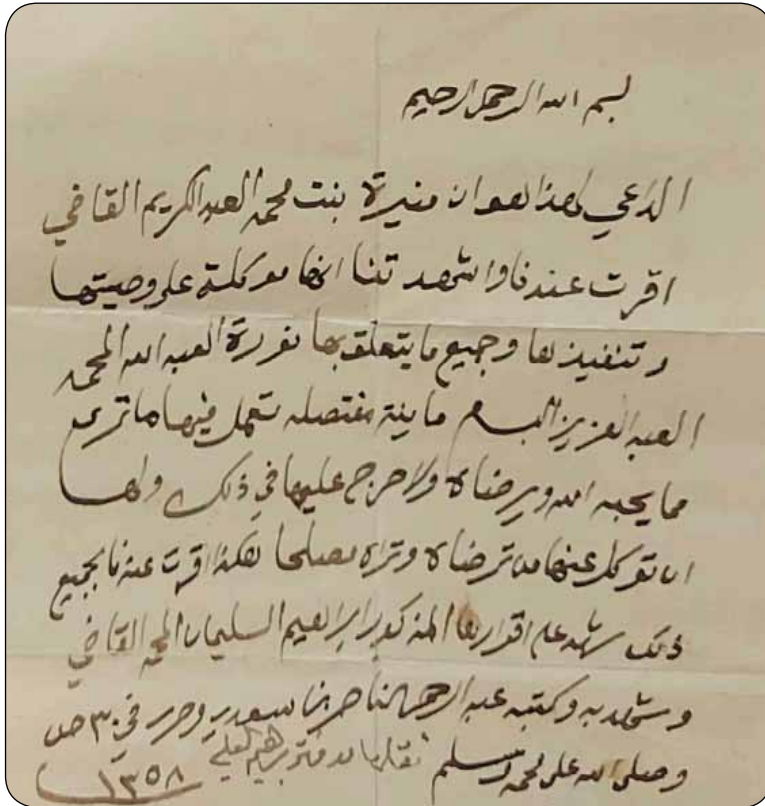 بسم الله الرحمن الرحيم
الداعي لهذا هو ان منيرة بنت محمد العبد الكريم القاضي
اقرت عندنا واشهدتنا انها موكلة على وصيتها
وتنفيذها وجميع ما يتعلق بها نورة العبد الله المحمد
العبد العزيز البسام تعمل فيها ما ترى
مما يحبه الله ويرضاه ولا حرج عليها في ذلك ولها
ان توكل عنها من ترضاه وتراه مصلحا هكذا اقرت عندنا بجميع
ذلك شهد على اقرارها المذكور ابراهيم السليمان المحمد القاضي
وشهد به وكتبه عبد الرحمن الناصر بن سعدي وحرر في ٣٠ ص
وصلى الله على محمد وسلم
١٣٥٨